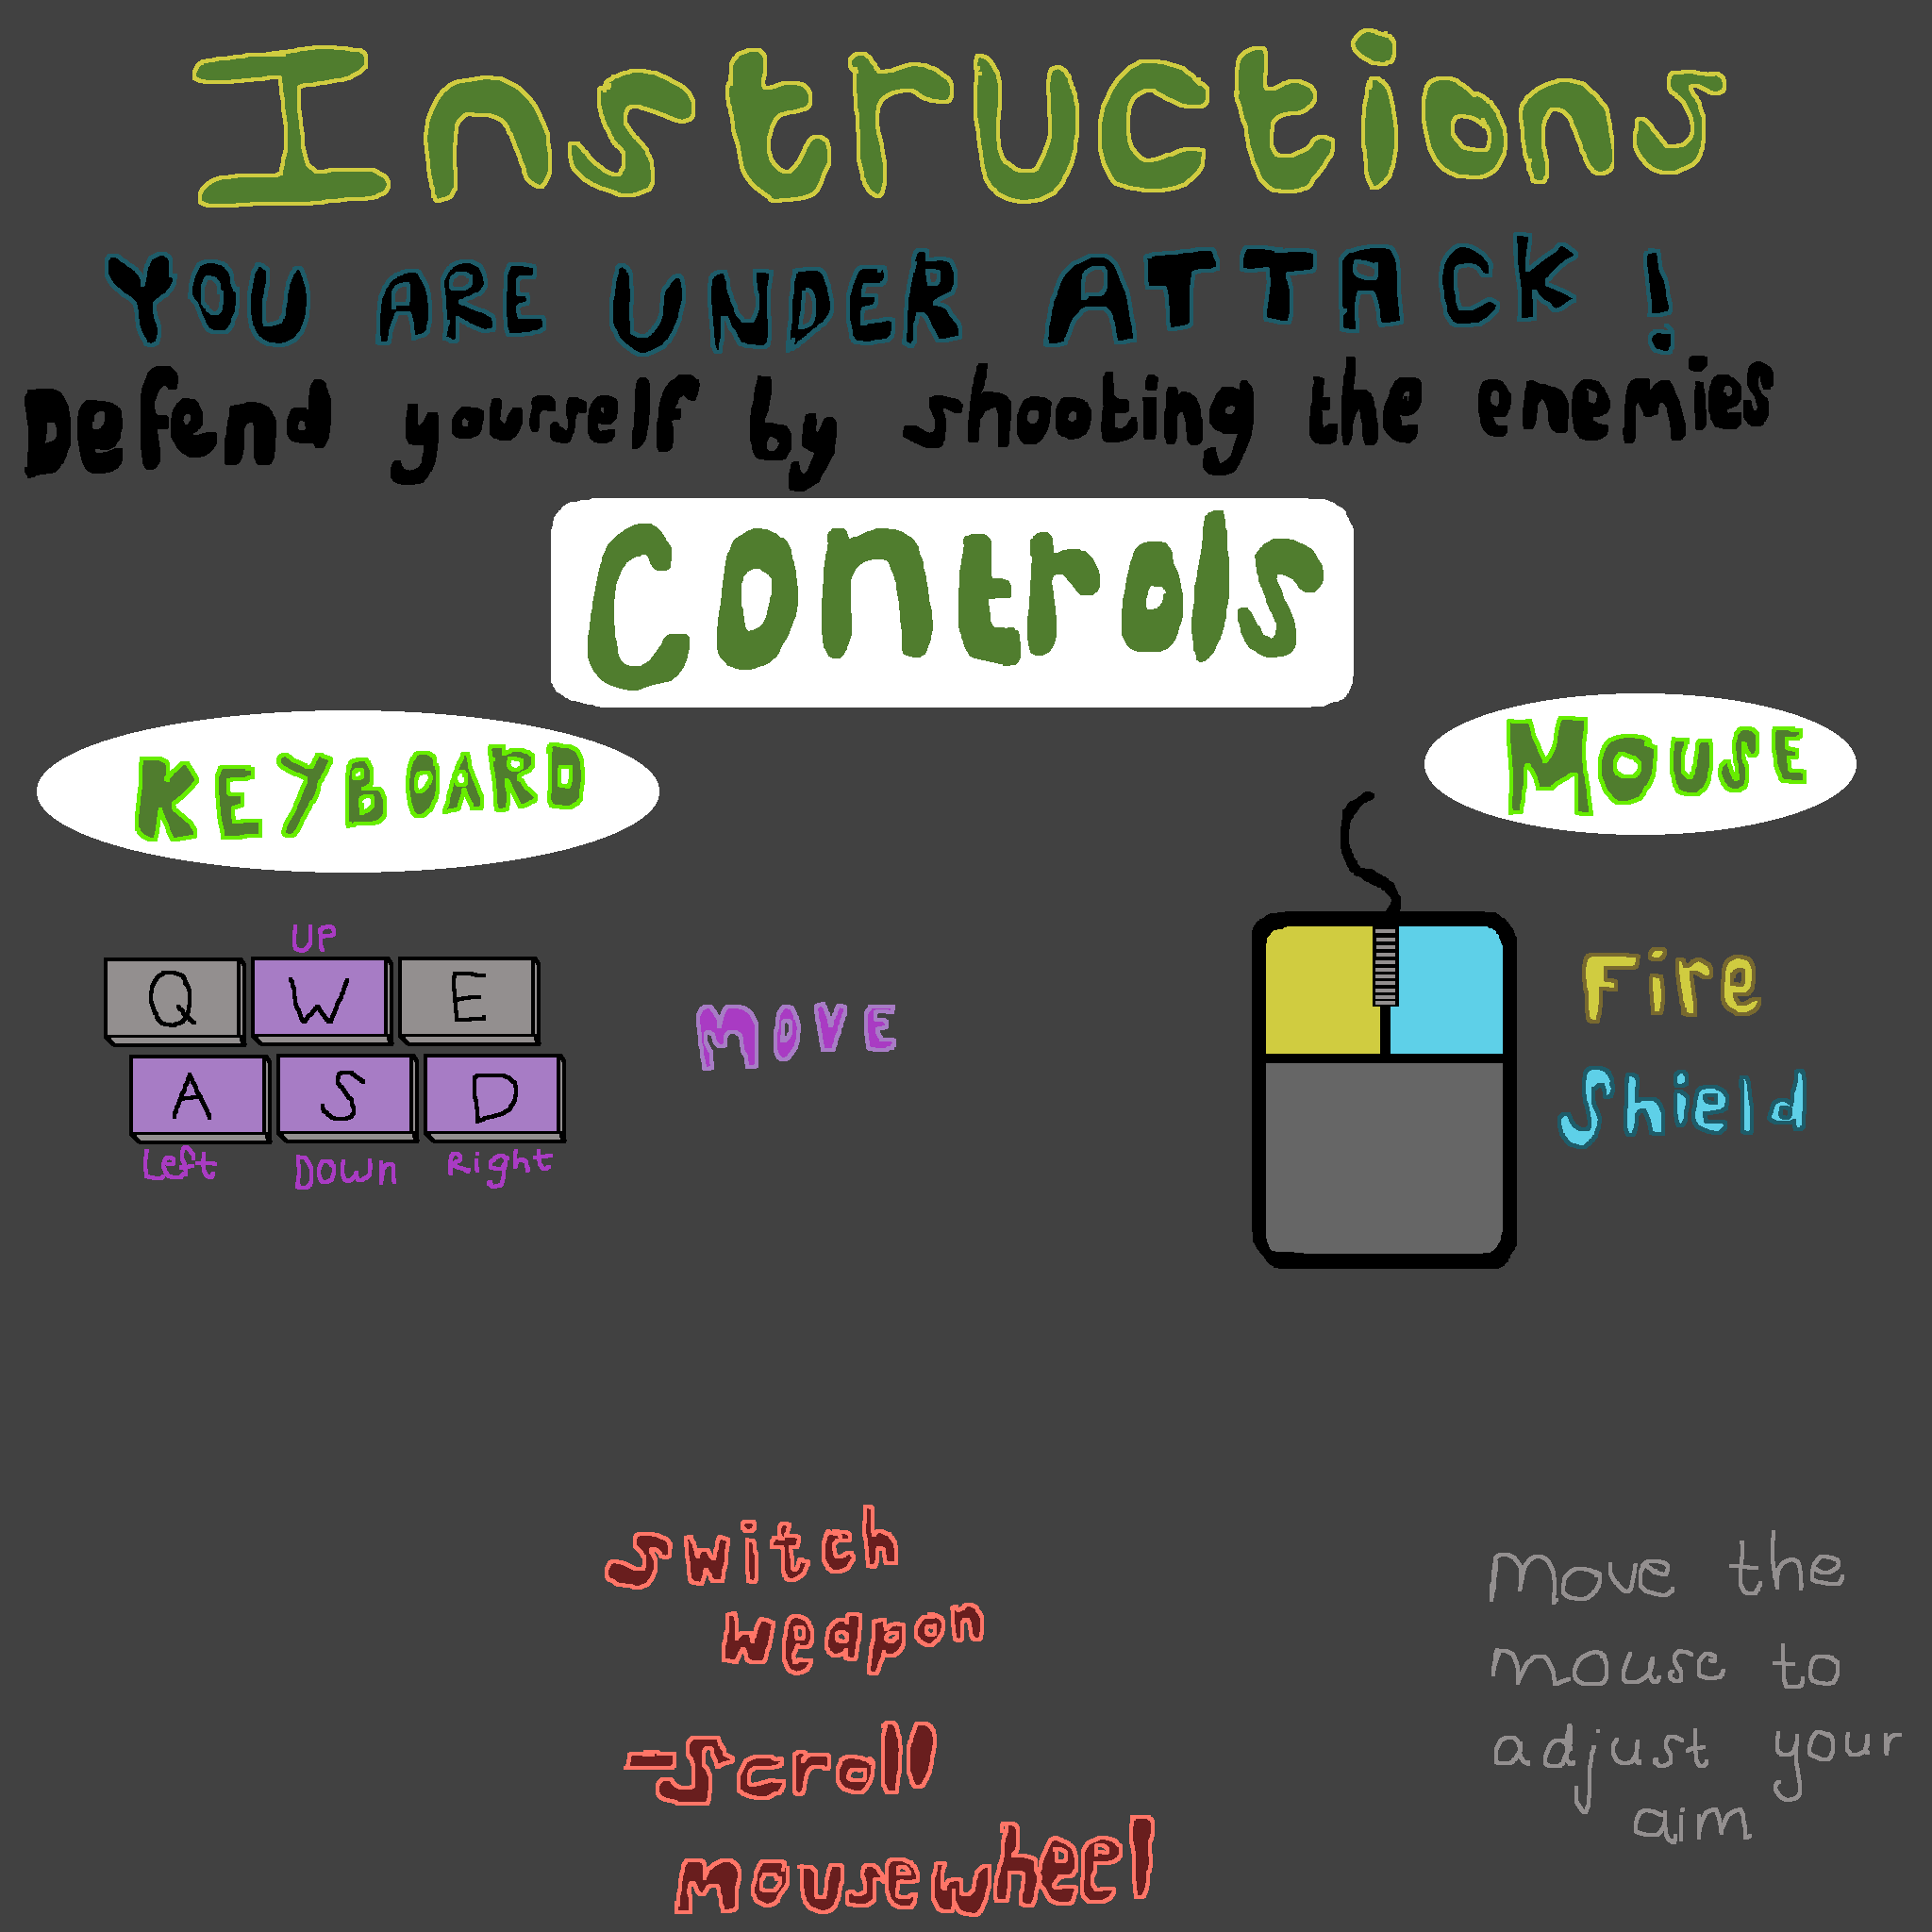 Instructions
YOU ARE UNDER ATTACK !
Defend yourself by shooting the enemies
Controls
KEYBOARD
MOUSE
UP
Q W E
A S D
Left Down Right
MOVE
Fire
Shield
switch
weapon
-Scroll
mousewheel
move the
mouse to
adjust your
aim